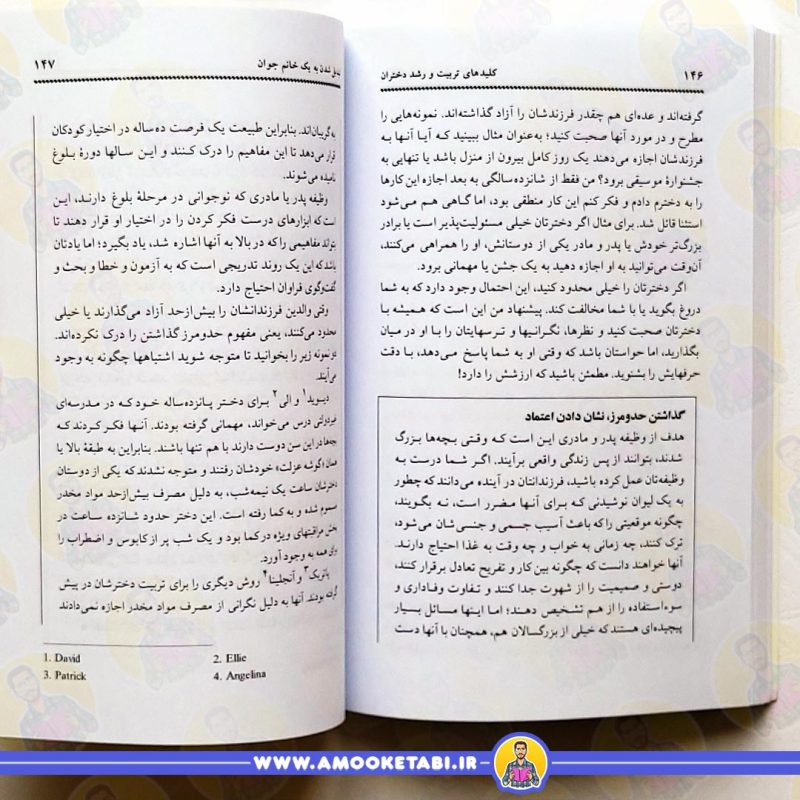 ۱۴۶
کلیدهای تربیت و رشد دختران
گرفته‌اند و عده‌ای هم چقدر فرزندشان را آزاد گذاشته‌اند. نمونه‌هایی را
مطرح و در مورد آنها صحبت کنید؛ به‌عنوان مثال ببینید که آیا آنها به
فرزندشان اجازه می‌دهند یک روز کامل بیرون از منزل باشد یا تنهایی به
جشنوارهٔ موسیقی برود؟ من فقط از شانزده‌سالگی به بعد اجازه این کارها
را به دخترم دادم و فکر کنم این کار منطقی بود، اما گاهی هم می‌شود
استثنا قائل شد. برای مثال اگر دخترتان خیلی مسئولیت‌پذیر است یا برادر
بزرگ‌تر خودش یا پدر و مادر یکی از دوستانش، او را همراهی می‌کنند،
آن‌وقت می‌توانید به او اجازه دهید به یک جشن یا مهمانی برود.
اگر دخترتان را خیلی محدود کنید، این احتمال وجود دارد که به شما
دروغ بگوید یا با شما مخالفت کند. پیشنهاد من این است که همیشه با
دخترتان صحبت کنید و نظرها، نگرانیها و ترسهایتان را با او در میان
بگذارید، اما حواستان باشد که وقتی او به شما پاسخ می‌دهد، با دقت
حرفهایش را بشنوید. مطمئن باشید که ارزشش را دارد!
گذاشتن حدومرز، نشان دادن اعتماد
هدف از وظیفه پدر و مادری این است که وقتی بچه‌ها بزرگ
شدند، بتوانند از پس زندگی واقعی برآیند. اگر شما درست به
وظیفه‌تان عمل کرده باشید، فرزندانتان در آینده می‌دانند که چطور
به یک لیوان نوشیدنی که برای آنها مضرر است، نه بگویند،
چگونه موقعیتی را که باعث آسیب جسمی و جنسی‌شان می‌شود،
ترک کنند، چه زمانی به خواب و چه وقت به غذا احتیاج دارند.
آنها خواهند دانست که چگونه بین کار و تفریح تعادل برقرار کنند،
دوستی و صمیمیت را از شهوت جدا کنند و تفاوت وفاداری و
سوءاستفاده را از هم تشخیص دهند؛ اما اینها مسائل بسیار
پیچیده‌ای هستند که خیلی از بزرگسالان هم، همچنان با آنها دست
شدن به یک خانم جوان
۱۴۷
به گریبان‌اند. بنابراین طبیعت یک فرصت ده‌ساله در اختیار کودکان
قرار می‌دهد تا این مفاهیم را درک کنند و این سالها دورهٔ بلوغ
نامیده می‌شوند.
وظیفه پدر یا مادری که نوجوانی در مرحلهٔ بلوغ دارند، این
است که ابزارهای درست فکر کردن را در اختیار او قرار دهند تا
بتواند مفاهیمی را که در بالا به آنها اشاره شد، یاد بگیرد؛ اما یادتان
باشد که این یک روند تدریجی است که به آزمون و خطا و بحث و
گفت‌وگوی فراوان احتیاج دارد.
وقتی والدین فرزندانشان را بیش‌ازحد آزاد می‌گذارند یا خیلی
محدود می‌کنند، یعنی مفهوم حدومرز گذاشتن را درک نکرده‌اند.
دو نمونه زیر را بخوانید تا متوجه شوید اشتباهها چگونه به وجود
می‌آیند.
دیوید۱ و الی۲ برای دختر پانزده‌ساله خود که در مدرسه‌ای
غیردولتی درس می‌خواند، مهمانی گرفته بودند. آنها فکر کردند که
بچه‌ها در این سن دوست دارند با هم تنها باشند. بنابراین به طبقهٔ بالا یا
همان «گوشه عزلت» خودشان رفتند و متوجه نشدند که یکی از دوستان
دخترشان ساعت یک نیمه‌شب، به دلیل مصرف بیش‌ازحد مواد مخدر
مسموم شده و به کما رفته است. این دختر حدود شانزده ساعت در
بخش مراقبتهای ویژه در کما بود و یک شب پر از کابوس و اضطراب را
برای همه به وجود آورد.
پاتریک۳ و آنجلینا۴ روش دیگری را برای تربیت دخترشان در پیش
گرفته بودند. آنها به دلیل نگرانی از مصرف مواد مخدر اجازه نمی‌دادند
1. David
2. Ellie
3. Patrick
4. Angelina
WWW.AMOOKETABI.IR